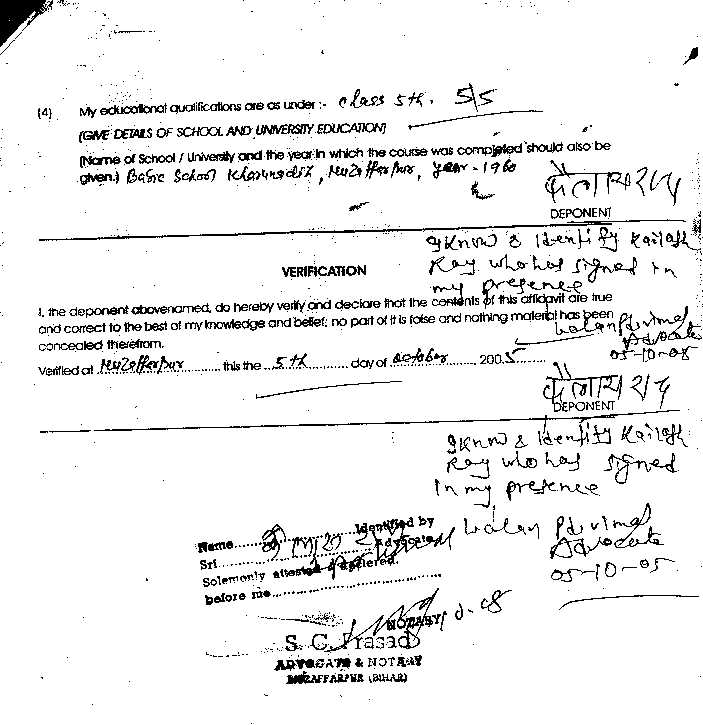 (4) My educational qualifications are as under :- Class 5th. 5/5
(GIVE DETAILS OF SCHOOL AND UNIVERSITY EDUCATION)
(Name of School / University and the year in which the course was completed should also be
given.) Basic School , Muzaffarpur, year - 1960
DEPONENT
I Know & Identify Kailash
VERIFICATION
Ray who has signed in
my presence
I, the deponent abovenamed, do hereby verify and declare that the contents of this affidavit are true
and correct to the best of my knowledge and belief; no part of it is false and nothing material has been
concealed therefrom.
Advocate
05-10-05
Verified at Muzaffarpur this the 5th day of October, 2005
DEPONENT
I Know & Identify Kailash
Ray who has signed
in my presence
Identified by
Name
Advocate
Sri
Advocate
Solemonly attested & before me
05-10-05
NOTARY
S. C. Prasad
ADVOCATE & NOTARY
MUZAFFARPUR (BIHAR)